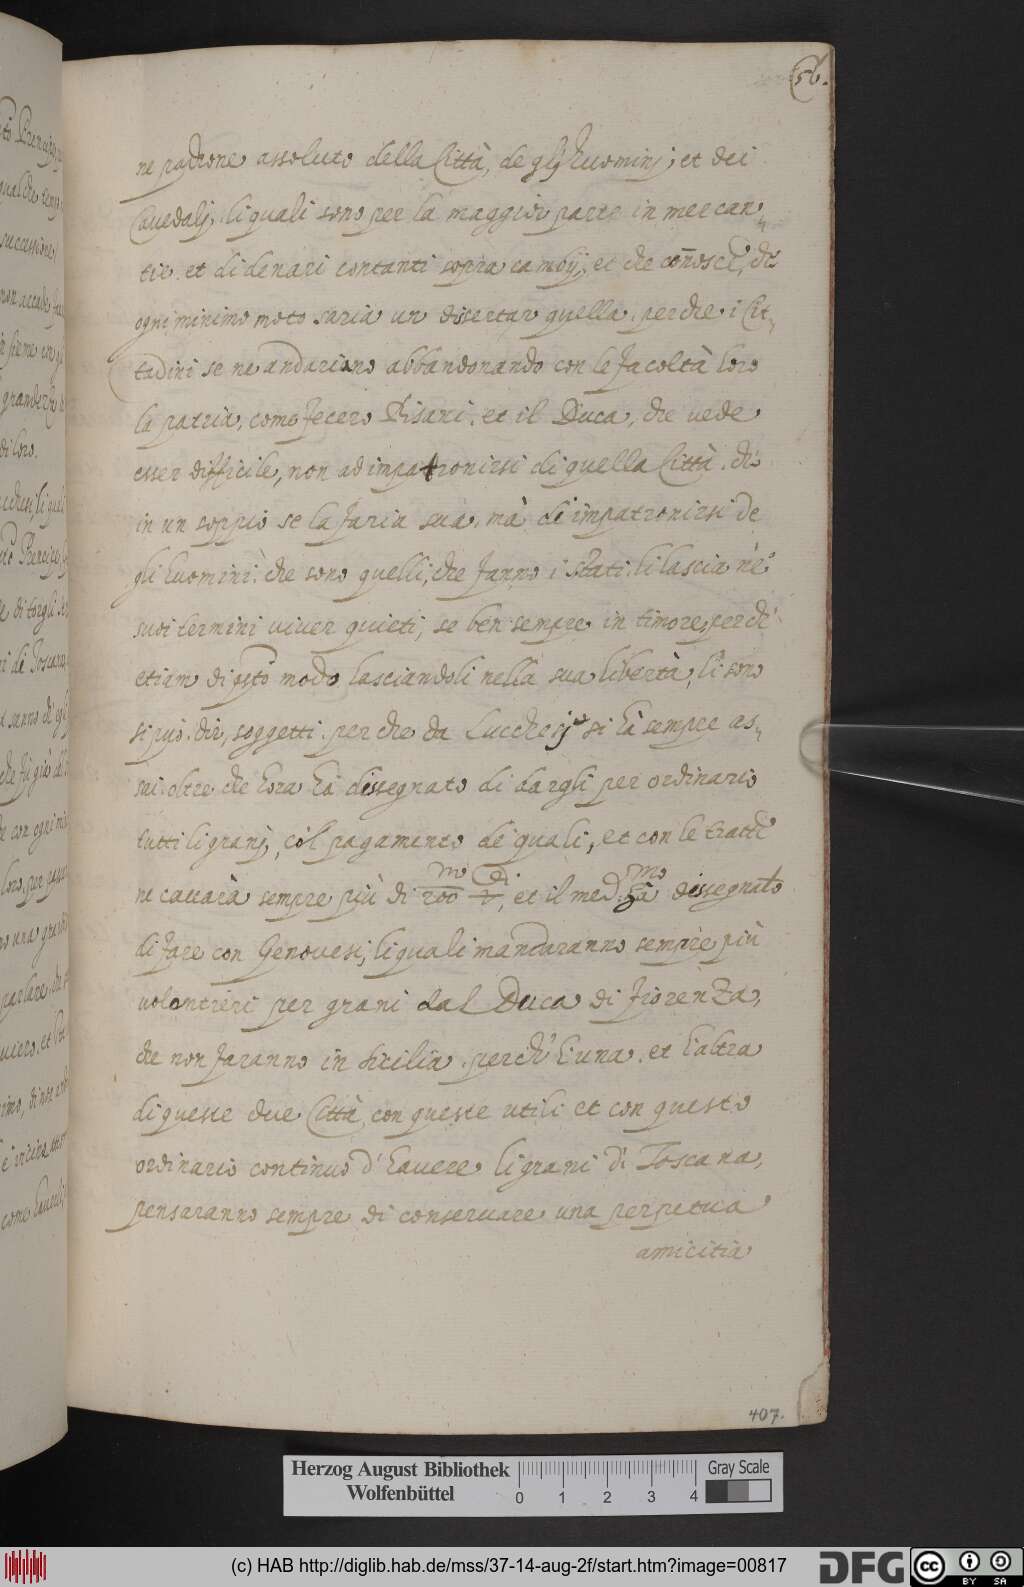 56.
ne padrone assoluto della Città, de glj huominj, et dei
Cavedalj, li quali sono per la maggior parte in mercan„
tie, et di denari contanti sopra cambij, et che coñosce, ch'
ogni minimo moto saria un desertar quella, perche i Cit„
tadini se ne andariano abbandonando con le facoltà loro
la patria, come fecero Pisani, et il Duca, che vede
esser difficile, non ad impatronirsi di quella Città, ch'
in un soppio se la faria sua, mà di impatronirsi de
gli huomini, che sono quelli, che fanno i stati, li lascia nè
suoi termini viver quieti, se ben sempre in timore, perch'
etiam di qsto modo lasciandoli nella sua libertà, li sono
si può dir, soggetti, perche da Lucchesij si hà sempre as„
sai, oltre che hora hà dissegnato di dargli per ordinario
tutti li granj, col pagamento de quali, et con le tratte
ne cavarà sempre più di 200 mo di, et il med.mo hà dissegnato
di fare con Genovesi, li quali mandaranno sempre più
volontieri per grani dal Duca di Fiorenza,
che non faranno in Sicilia, perch' l'una, et l'altra
di queste due Città, con queste utili et con questo
ordinario continuo d'havere li grani di Toscana,
pensaranno sempre di conservare una perpetua
amicitia
407.
Herzog August Bibliothek
Wolfenbüttel
0 1 2 3 4
Gray Scale
(c) HAB http://diglib.hab.de/mss/37-14-aug-2f/start.htm?image=00817
DFG
cc BY SA